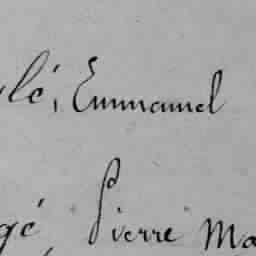 lé, Emmanuel
gé, Pierre Ma